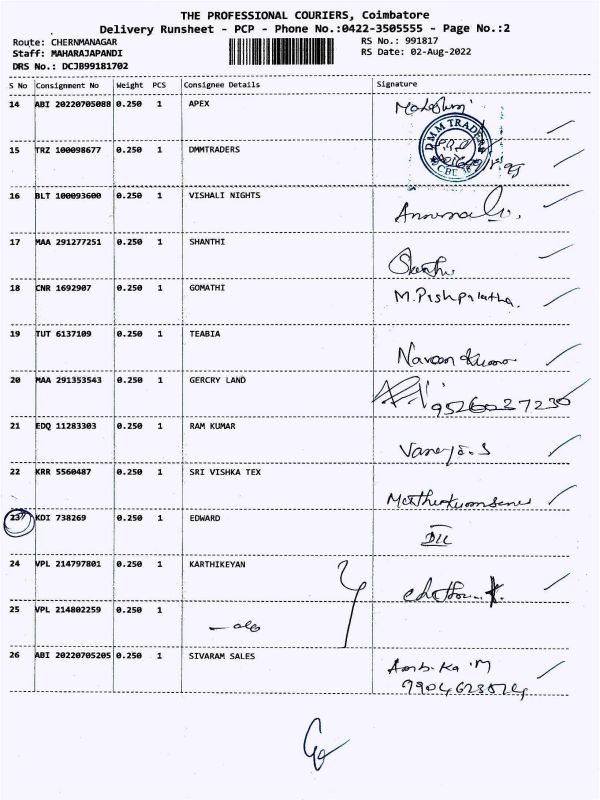 THE PROFESSIONAL COURIERS, Coimbatore
Delivery Runsheet - PCP - Phone No.:0422-3505555 - Page No.:2
Route: CHERNMANAGAR RS No.: 991817
Staff: MAHARAJAPANDI RS Date: 02-Aug-2022
DRS No.: DCJB99181702
S No Consignment No Weight PCS Consignee Details Signature
14 ABI 20220705088 0.250 1 APEX
DMM TRADERS
CBE
15 TRZ 100098677 0.250 1 DMMTRADERS
16 BLT 100093600 0.250 1 VISHALI NIGHTS
17 MAA 291277251 0.250 1 SHANTHI
Shanthi
18 CNR 1692907 0.250 1 GOMATHI M.Pushpalatha.
19 TUT 6137109 0.250 1 TEABIA
Naveen Kumar
20 MAA 291353543 0.250 1 GERCRY LAND
9526027230
21 EDQ 11283303 0.250 1 RAM KUMAR
22 KRR 5560487 0.250 1 SRI VISHKA TEX
23 KDI 738269 0.250 1 EDWARD
24 VPL 214797801 0.250 1 KARTHIKEYAN
25 VPL 214802259 0.250 1
26 ABI 20220705205 0.250 1 SIVARAM SALES
Ambika M